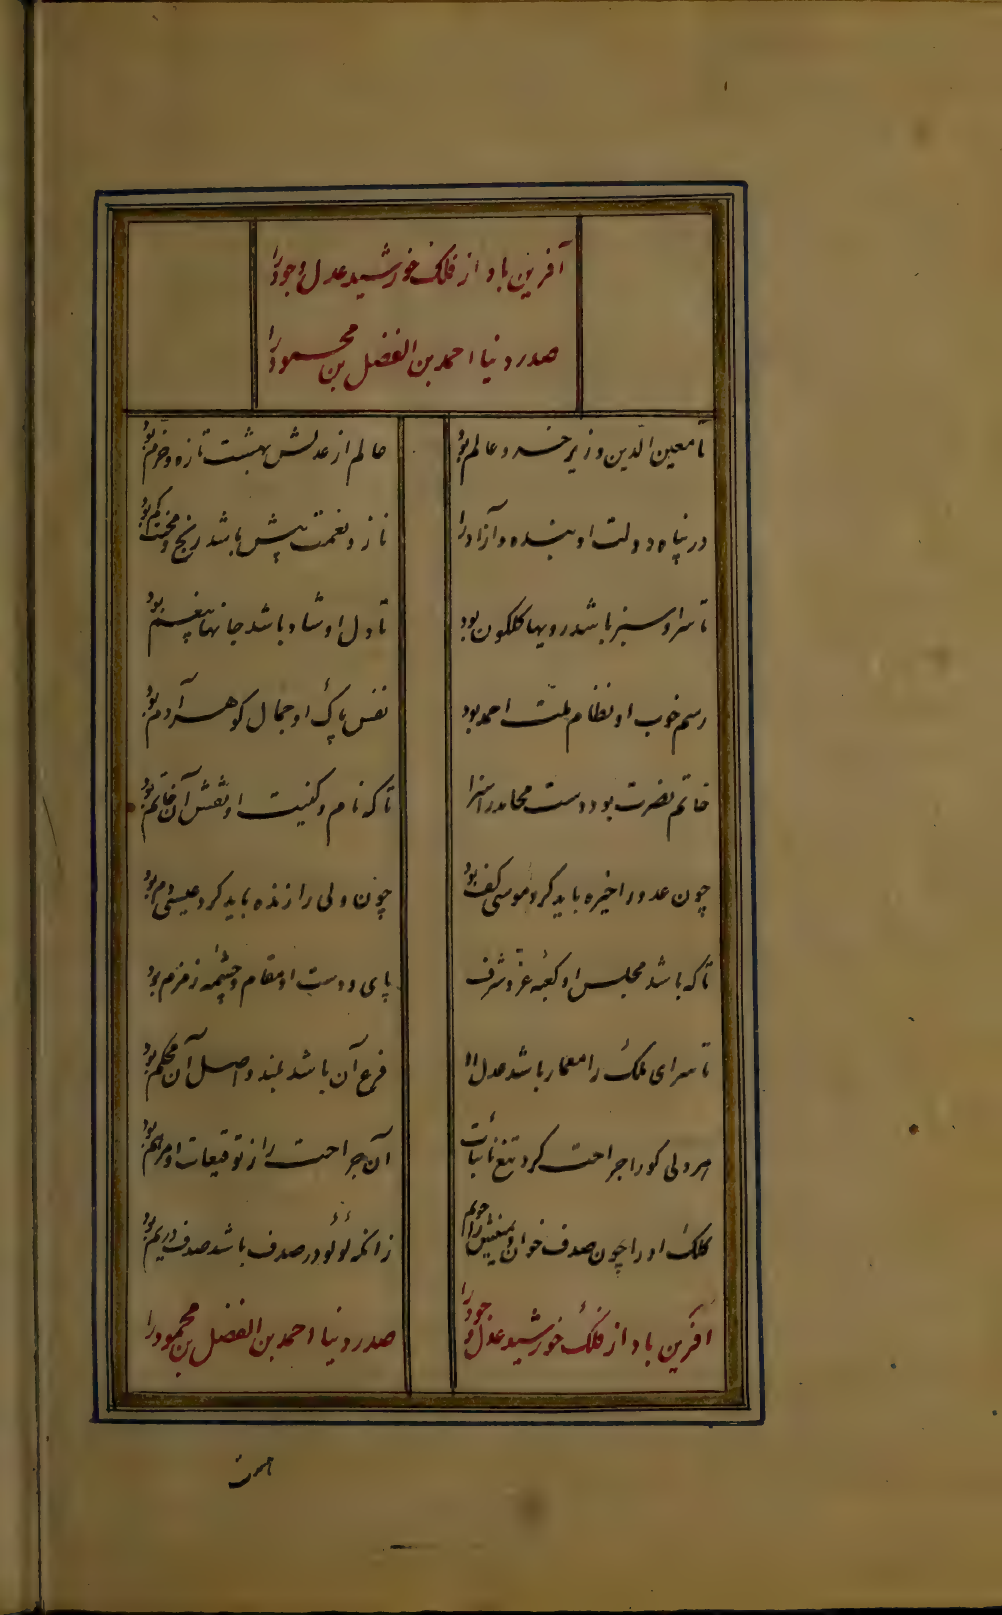 آفرین باد از فلک خورشید عدل و جود را
صدر دنیا احمد بن الفضل بن محمود را
تا معین الدین وزیر خسرو عالم بود
عالم از عدلش بهشت تازه و خرم بود
در پناه دولت او بنده و آزاد را
ناز و نعمت بیش باشد رنج و محنت کم بود
تا سر او سبز باشد رویها کلکون بود
تا دل او شاد باشد جانها بیغم بود
رسم خوب او نظام ملت احمد بود
نفس پاک او جمال کوهر آدم بود
خاتم نصرت بود دست محامد را سزا
تا که نام و کنیت او نقش آن خاتم بود
چون عدو را خیره باید کرد موسی کف بود
چون ولی را زنده باید کرد عیسی دم بود
تا که باشد مجلس او کعبه عز و شرف
پای و دست او مقام و چشمه زمزم بود
تا سرای ملک را معمار باشد عدل او
فرع آن باشد بلند و اصل آن محکم بود
هر دلی کو را جراحت کرد تیغ نائبات
آن جراحت را ز توقیعات او مرهم بود
کلک او را چون صدف خوان یمینش را چو یم
زانکه لولو در صدف باشد صدف در یم بود
آفرین باد از فلک خورشید عدل و جود را
صدر دنیا احمد بن الفضل بن محمود را